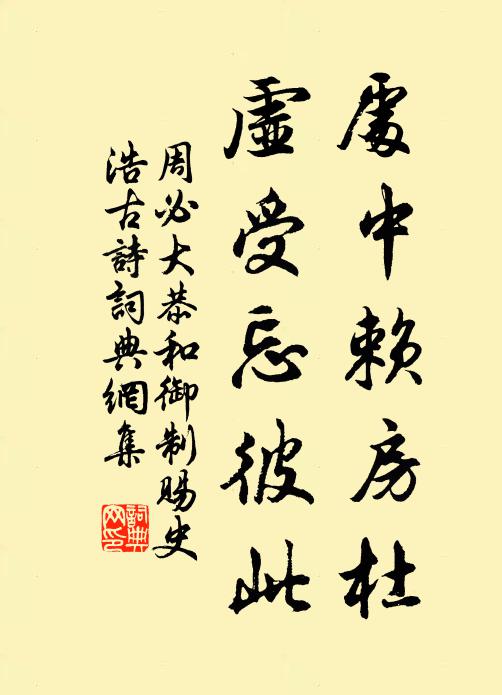 處中賴房杜
虛受忘彼此
周必大恭和御制賜史
浩古詩詞典網集
詞典
网印